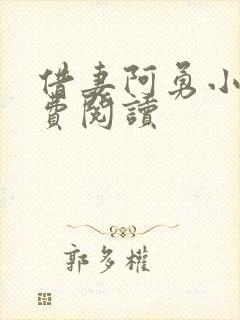 借妻阿勇小
費閱讀
郭多權